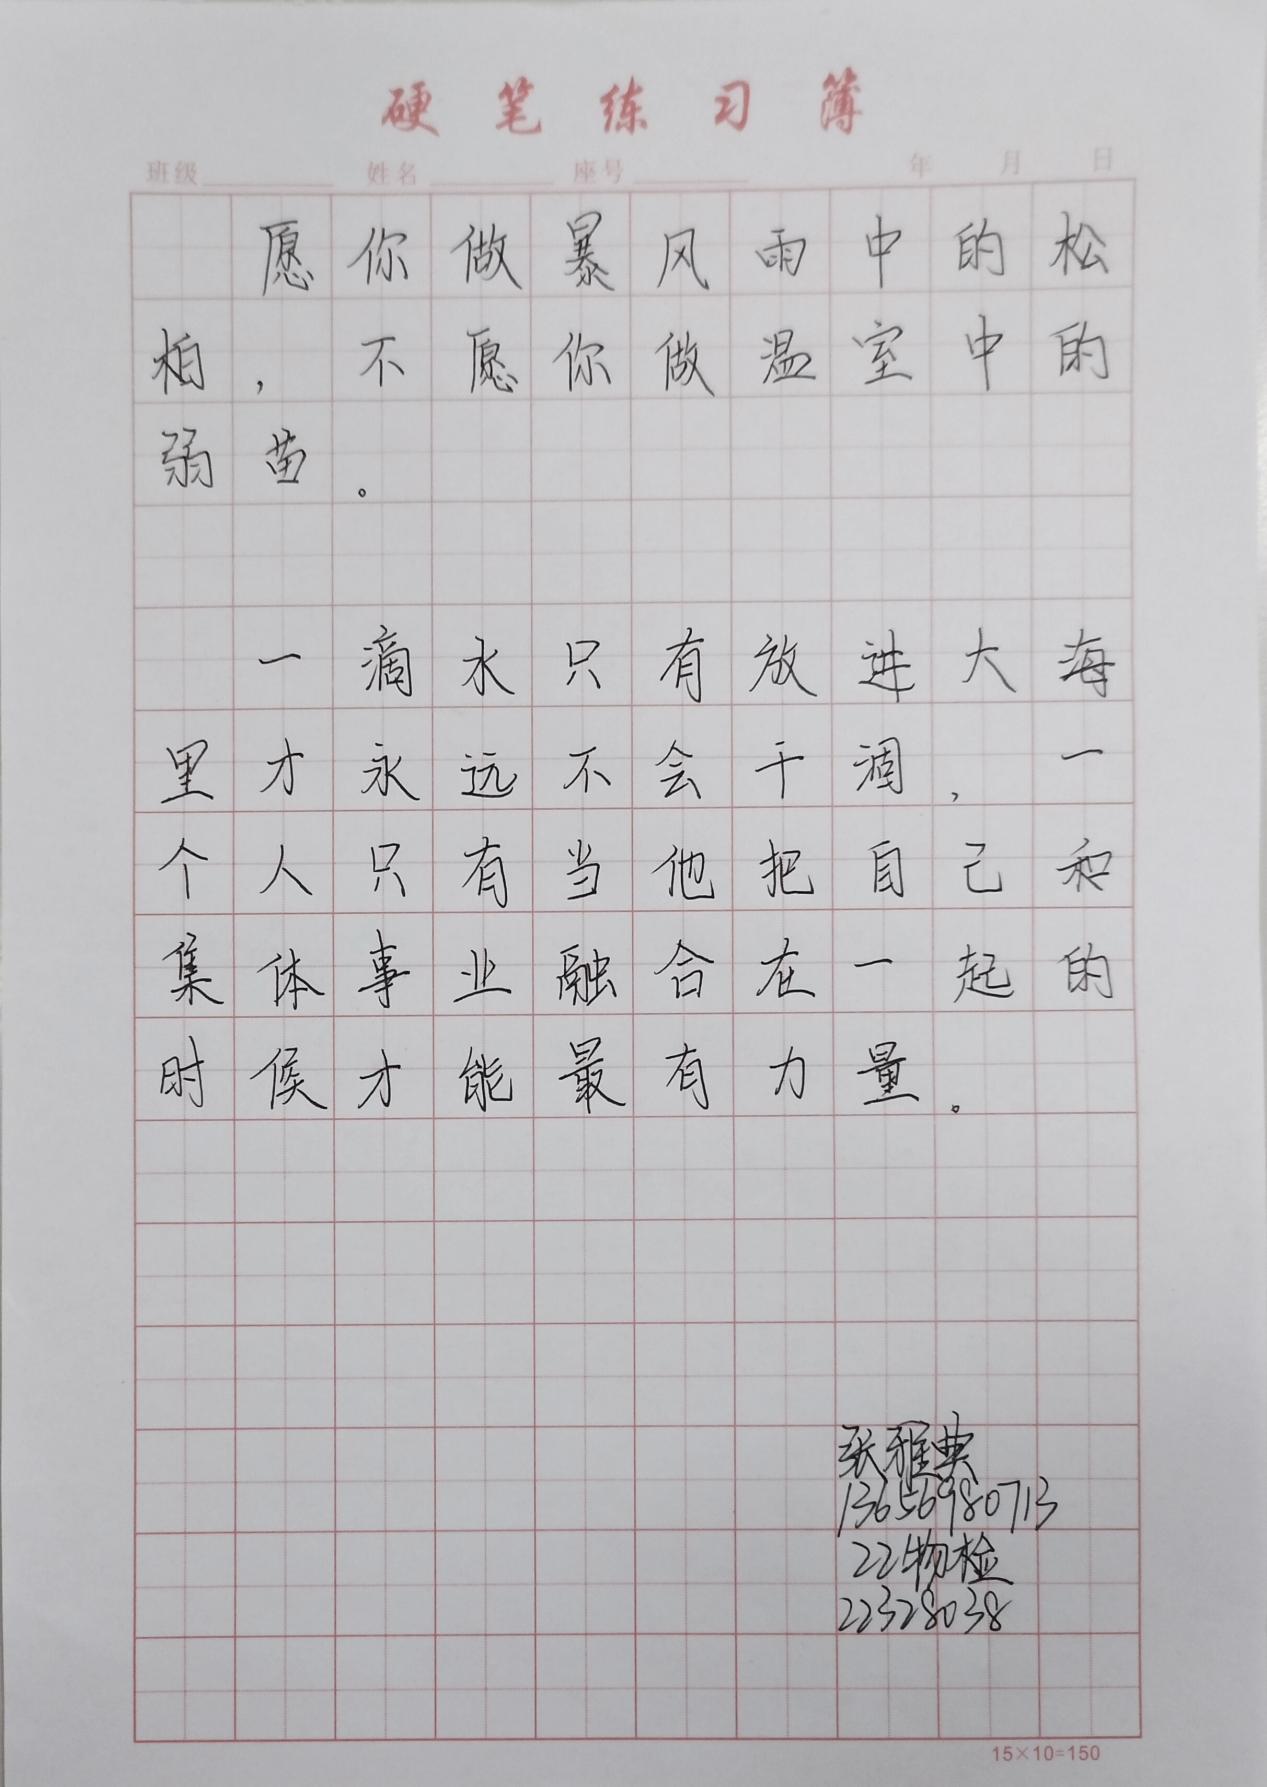 硬笔练习簿
班级 姓名 座号 年 月 日
愿你做暴风雨中的松
柏，不愿你做温室中的
弱苗。
一滴水只有放进大海
里才永远不会干涸，一
个人只有当他把自己和
集体事业融合在一起的
时候才能最有力量。
张雅典
13656980713
22物检
22328038
15×10=150